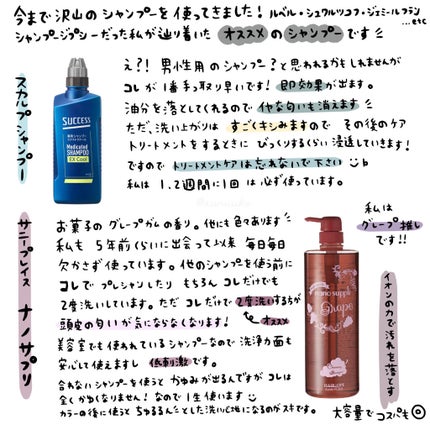 今まで沢山のシャンプーを使ってきました！ルベル・シュワルツコフ・ジェミールフラン
...etc
シャンプージプシーだった私が辿り着いた オススメ の シャンプー です
スカルプシャンプー
SUCCESS
Medicated
SHAMPOO
EX Cool
え?! 男性用のシャンプー？と思われる方もしれませんが
コレが1番手っ取り早いです！即効果が出ます。
油分を落としてくれるので イヤな匂いも消えます
ただ、洗い上がりは すごくキシみますので その後のケア
トリートメントをするときに びっくりするくらい浸透していきます！
ですので トリートメントケアは忘れないで下さい
私は 1.2週間に1回は必ず使っています。
サニープレイス ナノサプリ
お菓子のグレープガムの香り。他にも色々あります
私も 5年前くらいに出会って以来 毎日毎日
欠かさず使っています。他のシャンプーを使う前に
コレでプレシャンしたり もちろん コレだけでも
2度洗いしています。ただ コレだけで 2度洗いする方が
頭皮の匂いが気にならなくなります！
オススメ
美容室でも使われているシャンプーなので 洗浄力面も
安心して使えますし 低刺激です。
合わないシャンプーを使うと かゆみが出るんですが コレは
全くかゆくなりません！なので1生使います
カラーの後に使うと ちゅるるんとした洗い心地になるのがスキです。
私は
グレープ推し
です!!
nano suppli
Grape
イオンの力で汚れを落とす
大容量でコスパも◎